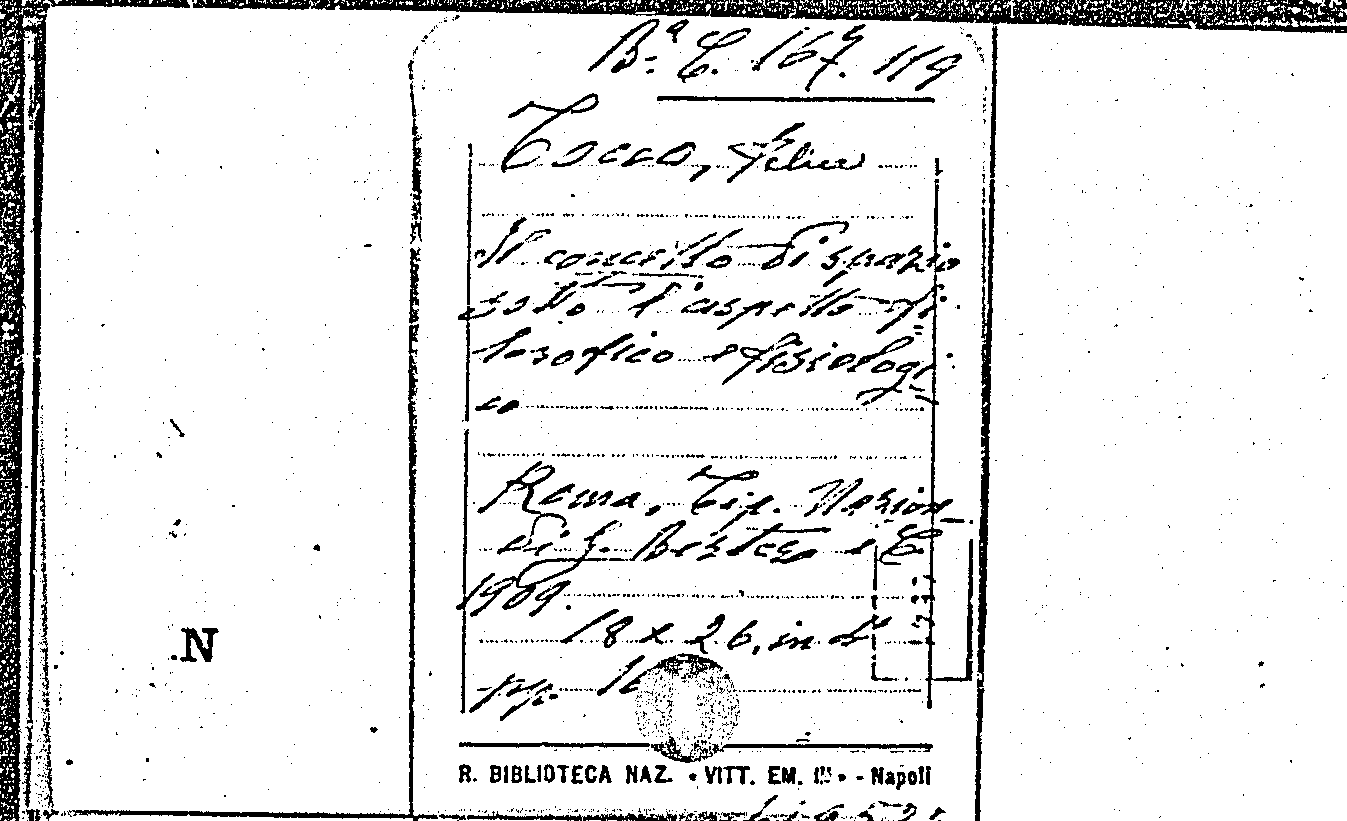 Bª C. 167. 119
Tocco, Felice
Il concetto di spazio
sotto l'aspetto fi-
losofico e fisiologi-
co
Roma, Tip. Nazion.
di G. Bertero e C.
1909.
18 x 26, in 4°
pp. 16
N
R. BIBLIOTECA NAZ. « VITT. EM. III » - Napoli